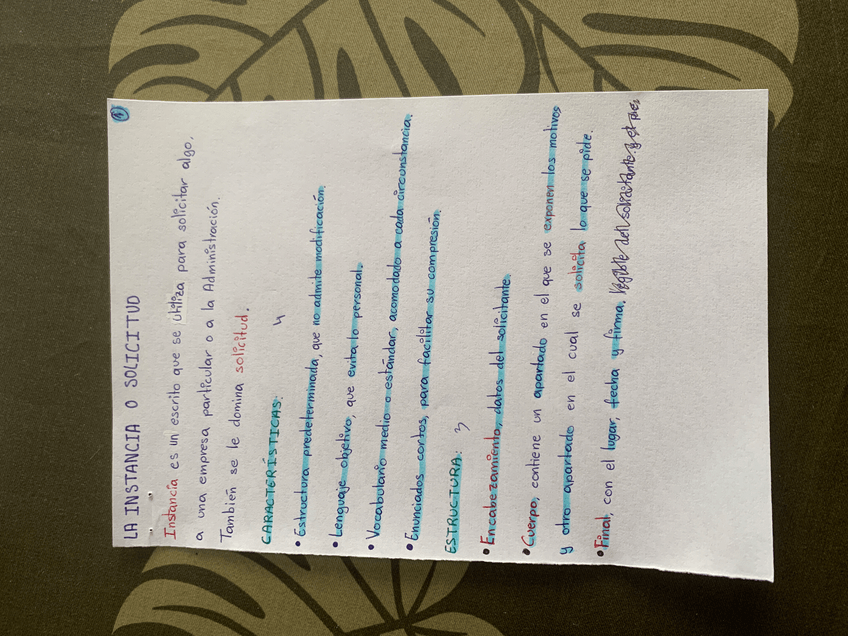 1
LA INSTANCIA O SOLICITUD
Instancia es un escrito que se utiliza para solicitar algo,
a una empresa particular o a la Administración.
También se le domina solicitud.
CARACTERÍSTICAS: 4
• Estructura predeterminada, que no admite modificación.
• Lenguaje objetivo, que evita lo personal.
• Vocabulario medio o estándar, acomodado a cada circunstancia.
• Enunciados cortos, para facilitar su compresión.
ESTRUCTURA: 3
• Encabezamiento, datos del solicitante.
• Cuerpo, contiene un apartado en el que se exponen los motivos
y otro apartado en el cual se solicita lo que se pide.
• Final, con el lugar, fecha y firma. del solicitante y el pie,